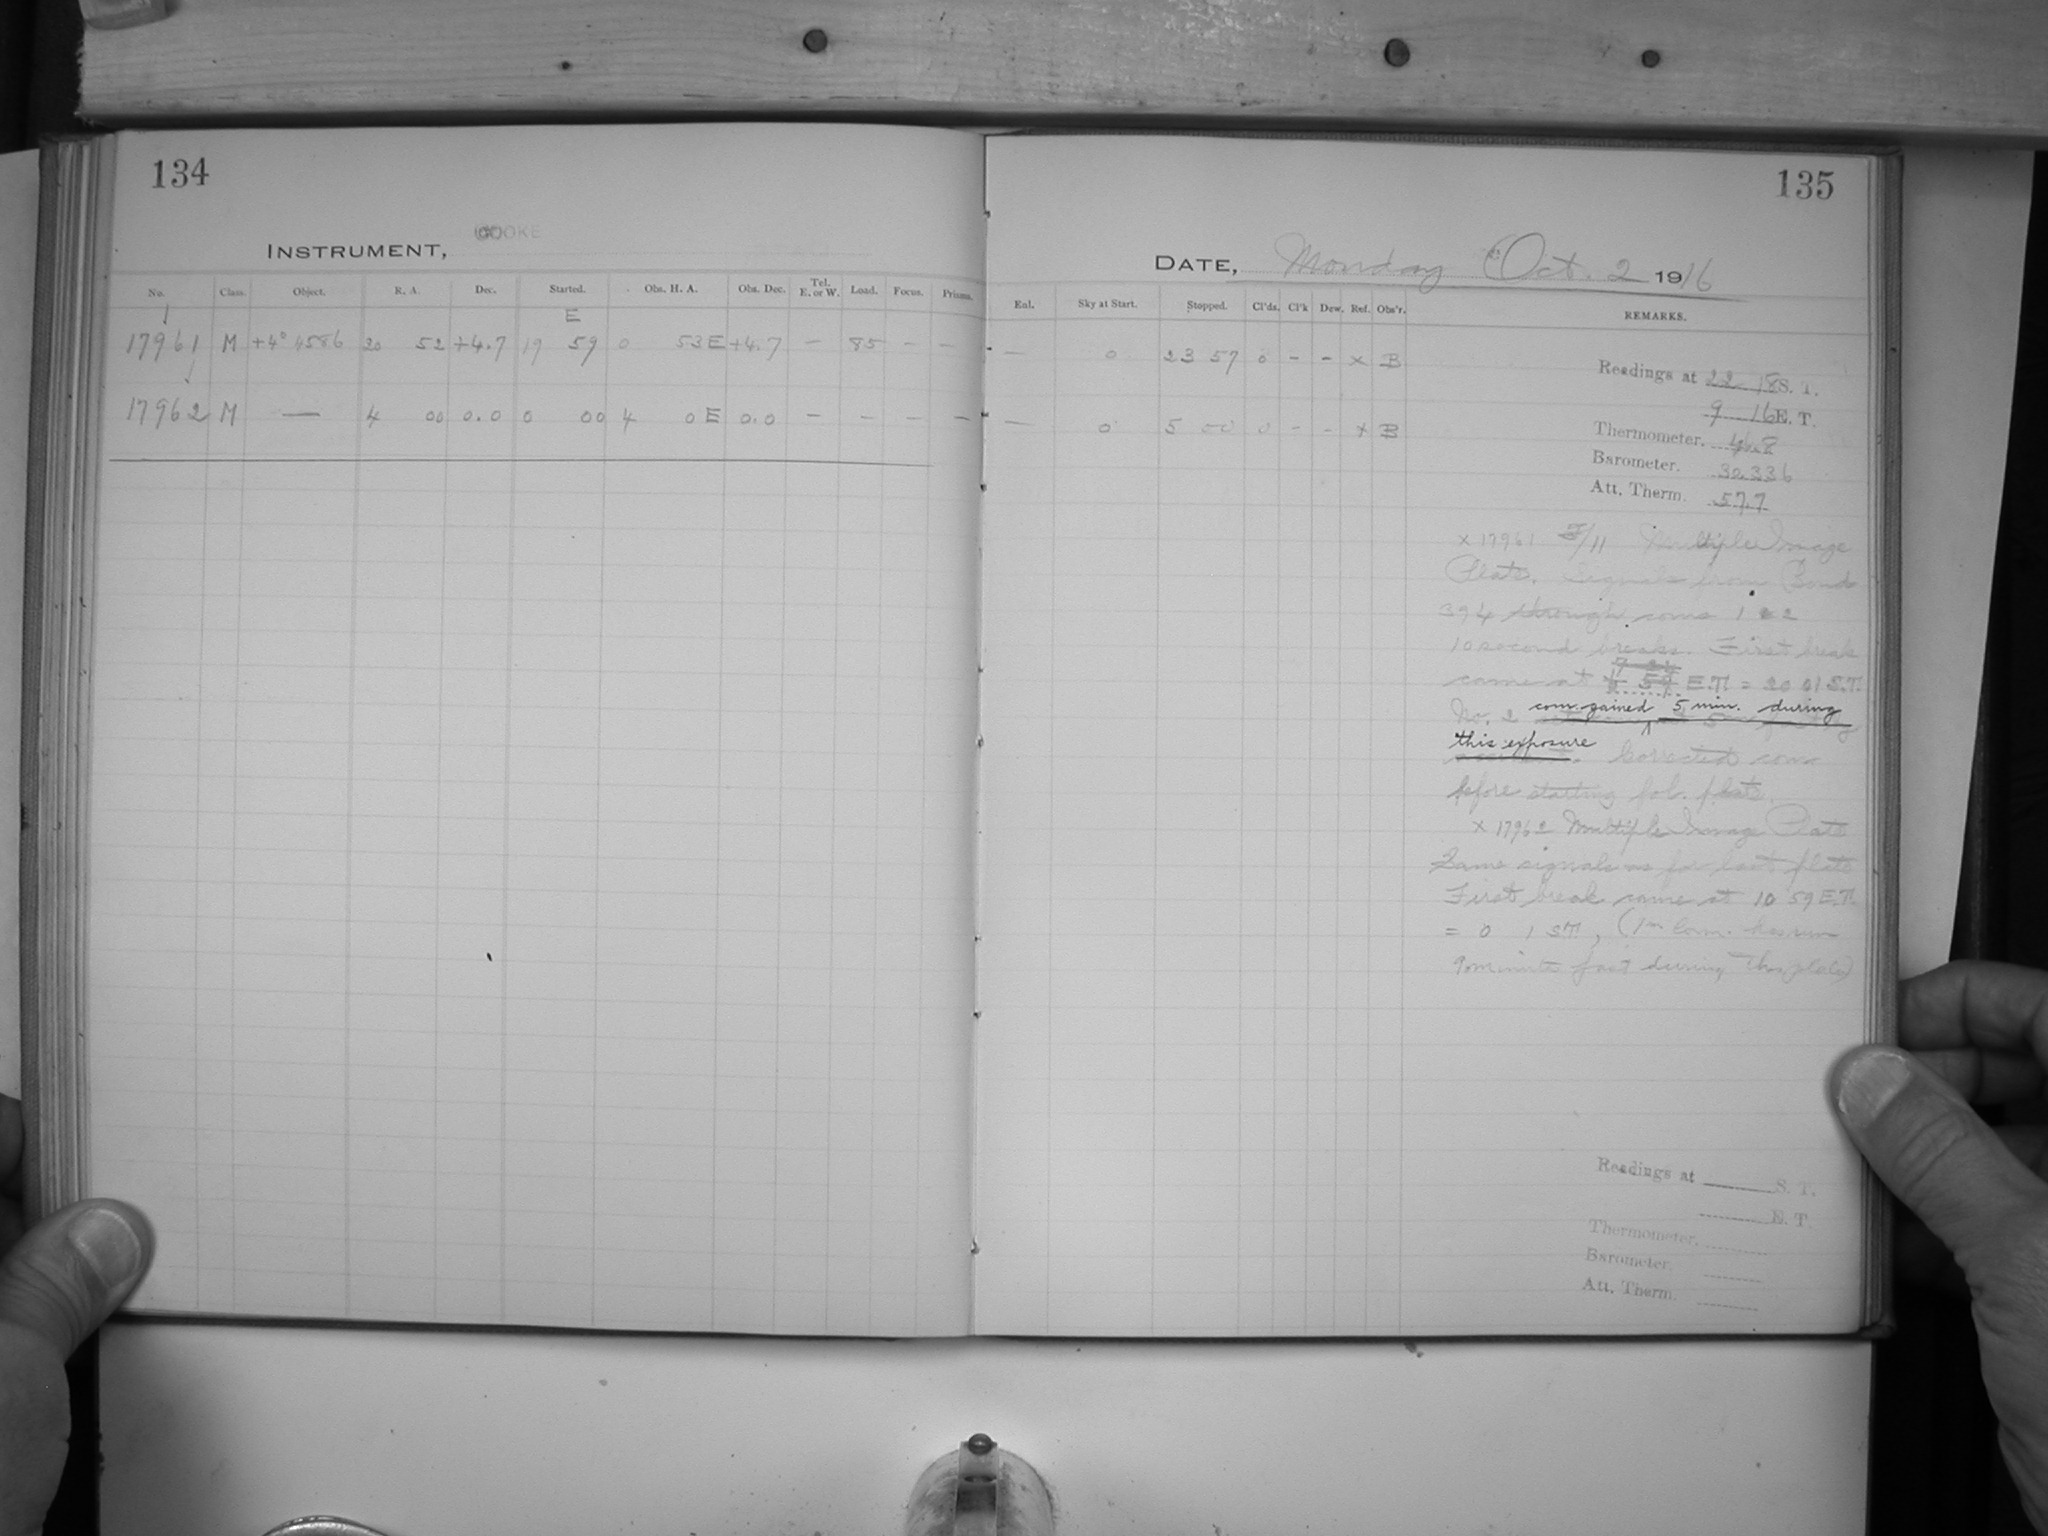 134
INSTRUMENT, COOKE
No. Class. Object. R. A. Dec. Started. Obs. H. A. Obs. Dec. Tel. E. or W. Load. Focus. Prisms.
E
17961 M +4° 4586 20 52 +4.7 19 59 0 53 E +4.7 — 85 — —
17962 M — 4 00 0.0 0 00 4 0 E 0.0 — — — —
135
DATE, Monday Oct. 2 1916
Enl. Sky at Start. Stopped. Cl'ds. Cl'k Dew. Ref. Obs'r. REMARKS.
— 0 23 57 0 - - x B
— 0 5 00 0 - - x B
Readings at 22 18 S. T.
9 16 E. T.
Thermometer. 46.8
Barometer. 30.336
Att. Therm. 57.7
x 17961 F/11 Multiple Image
Plate. Signals from Bond
394 through coms 1 & 2
10 second breaks. First break
7 24
came at E.T. = 20 01 S.T.
com. gained 5 min. during
No. 2
this exposure
Corrected com
before starting fol. plate.
x 17962 Multiple Image Plate
Same signals as for last plate
First break came at 10 59 E.T.
= 0 1 ST, (1m Com. has run
90 minutes fast during this plate)
Readings at S. T.
E. T.
Thermometer.
Barometer.
Att. Therm.